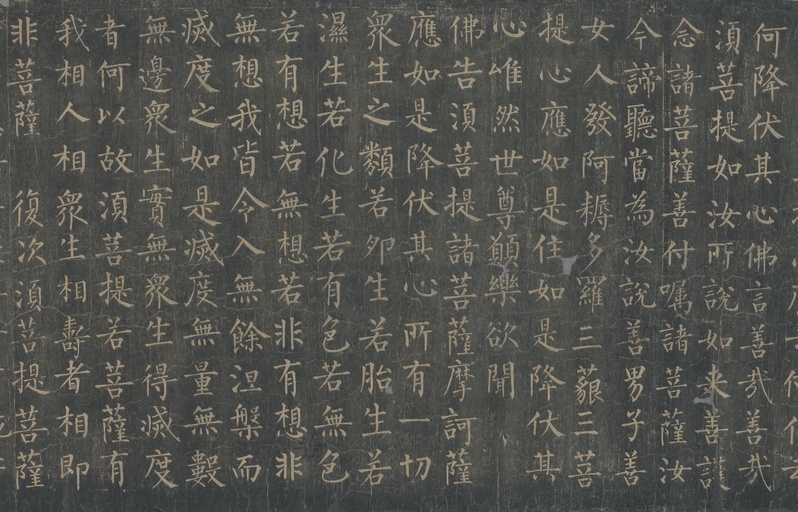 何降伏其心佛言善哉善哉
須菩提如汝所說如来善護
念諸菩薩善付嘱諸菩薩汝
今諦聽當為汝說善男子善
女人發阿耨多羅三藐三菩
提心應如是住如是降伏其
心唯然世尊願樂欲聞
佛告須菩提諸菩薩摩訶薩
應如是降伏其心所有一切
衆生之類若卵生若胎生若
濕生若化生若有色若無色
若有想若無想若非有想非
無想我皆令入無餘涅槃而
滅度之如是滅度無量無數
無邊衆生實無衆生得滅度
者何以故須菩提若菩薩有
我相人相衆生相壽者相即
非菩薩 復次須菩提菩薩